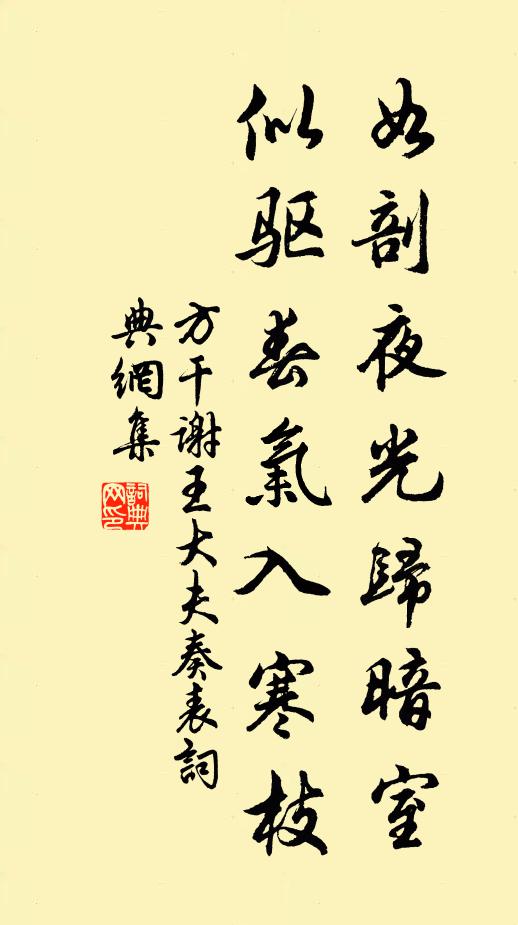 如剖夜光歸暗室
似驱春氣入寒枝
方干谢王大夫奏表詞
典網集
詞典
网印